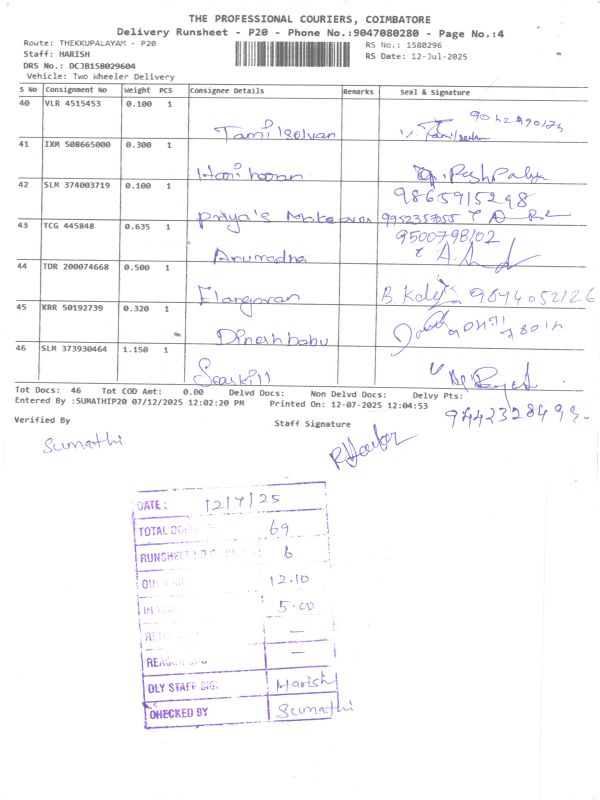 THE PROFESSIONAL COURIERS, COIMBATORE
Delivery Runsheet - P20 - Phone No.:9047080280 - Page No.:4
Route: THEKKUPALAYAM - P20
RS No.: 1580296
Staff: HARISH
RS Date: 12-Jul-2025
DRS No.: DCJB158029604
Vehicle: Two Wheeler Delivery
S No Consignment No Weight PCS Consignee Details Remarks Seal & Signature
40 VLR 4515453 0.100 1
Tamilselvan
41 IXM 508665000 0.300 1
42 SLM 374003719 0.100 1
9865915298
Priya's 9952357055
43 TCG 445848 0.635 1
9500798102
Anuradha
44 TDR 200074668 0.500 1
Elangovan 9694052126
45 KRR 50192739 0.320 1
Dineshbabu
46 SLM 373930464 1.150 1
Tot Docs: 46 Tot COD Amt: 0.00 Delvd Docs: Non Delvd Docs: Delvy Pts:
Entered By :SUMATHIP20 07/12/2025 12:02:20 PM Printed On: 12-07-2025 12:04:53
Verified By
Staff Signature
Sumathi
DATE : 12/7/25
TOTAL 69
RUNSHEET 6
12.10
IN 5.00
—
—
DLY STAFF SIG. Harish
CHECKED BY Sumathi